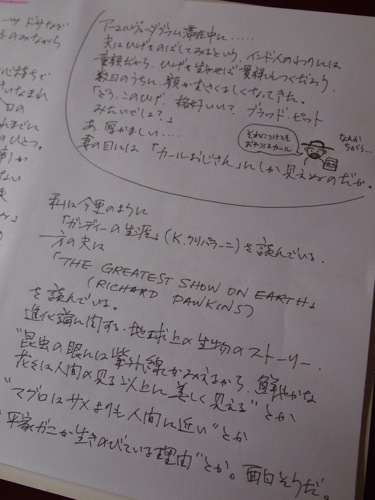 アーユルヴェーダグラム滞在中に……
夫はひげをのばしてみるという。インド人のわりには
童顔だから、ひげを生やせば貫禄もつくだろう
数日のうちに、顔がむさくるしくなってきた。
「どう、このひげ、格好いい？ ブラッド・ピット
みたいでしょ？」
あ、厚かましい……
妻の目には「カールおじさん」にしか見えぬのだが。
それにつけても
おやつはカール
なんか
ちがう…
私は今更のように
「ガンディーの生涯」(K.クリパラーニ)を読んでいる。
一方の夫は
「THE GREATEST SHOW ON EARTH」
(RICHARD DAWKINS)
を読んでいる。
進化論に関する、地球上の生物のストーリー。
"昆虫の眼には紫外線がみえるから、鮮やかな
花々は人間の見る以上に美しく見える"とか
"マグロはサメよりも人間に近い"とか
"平家ガニが生きのびている理由"とか。面白そうだ。